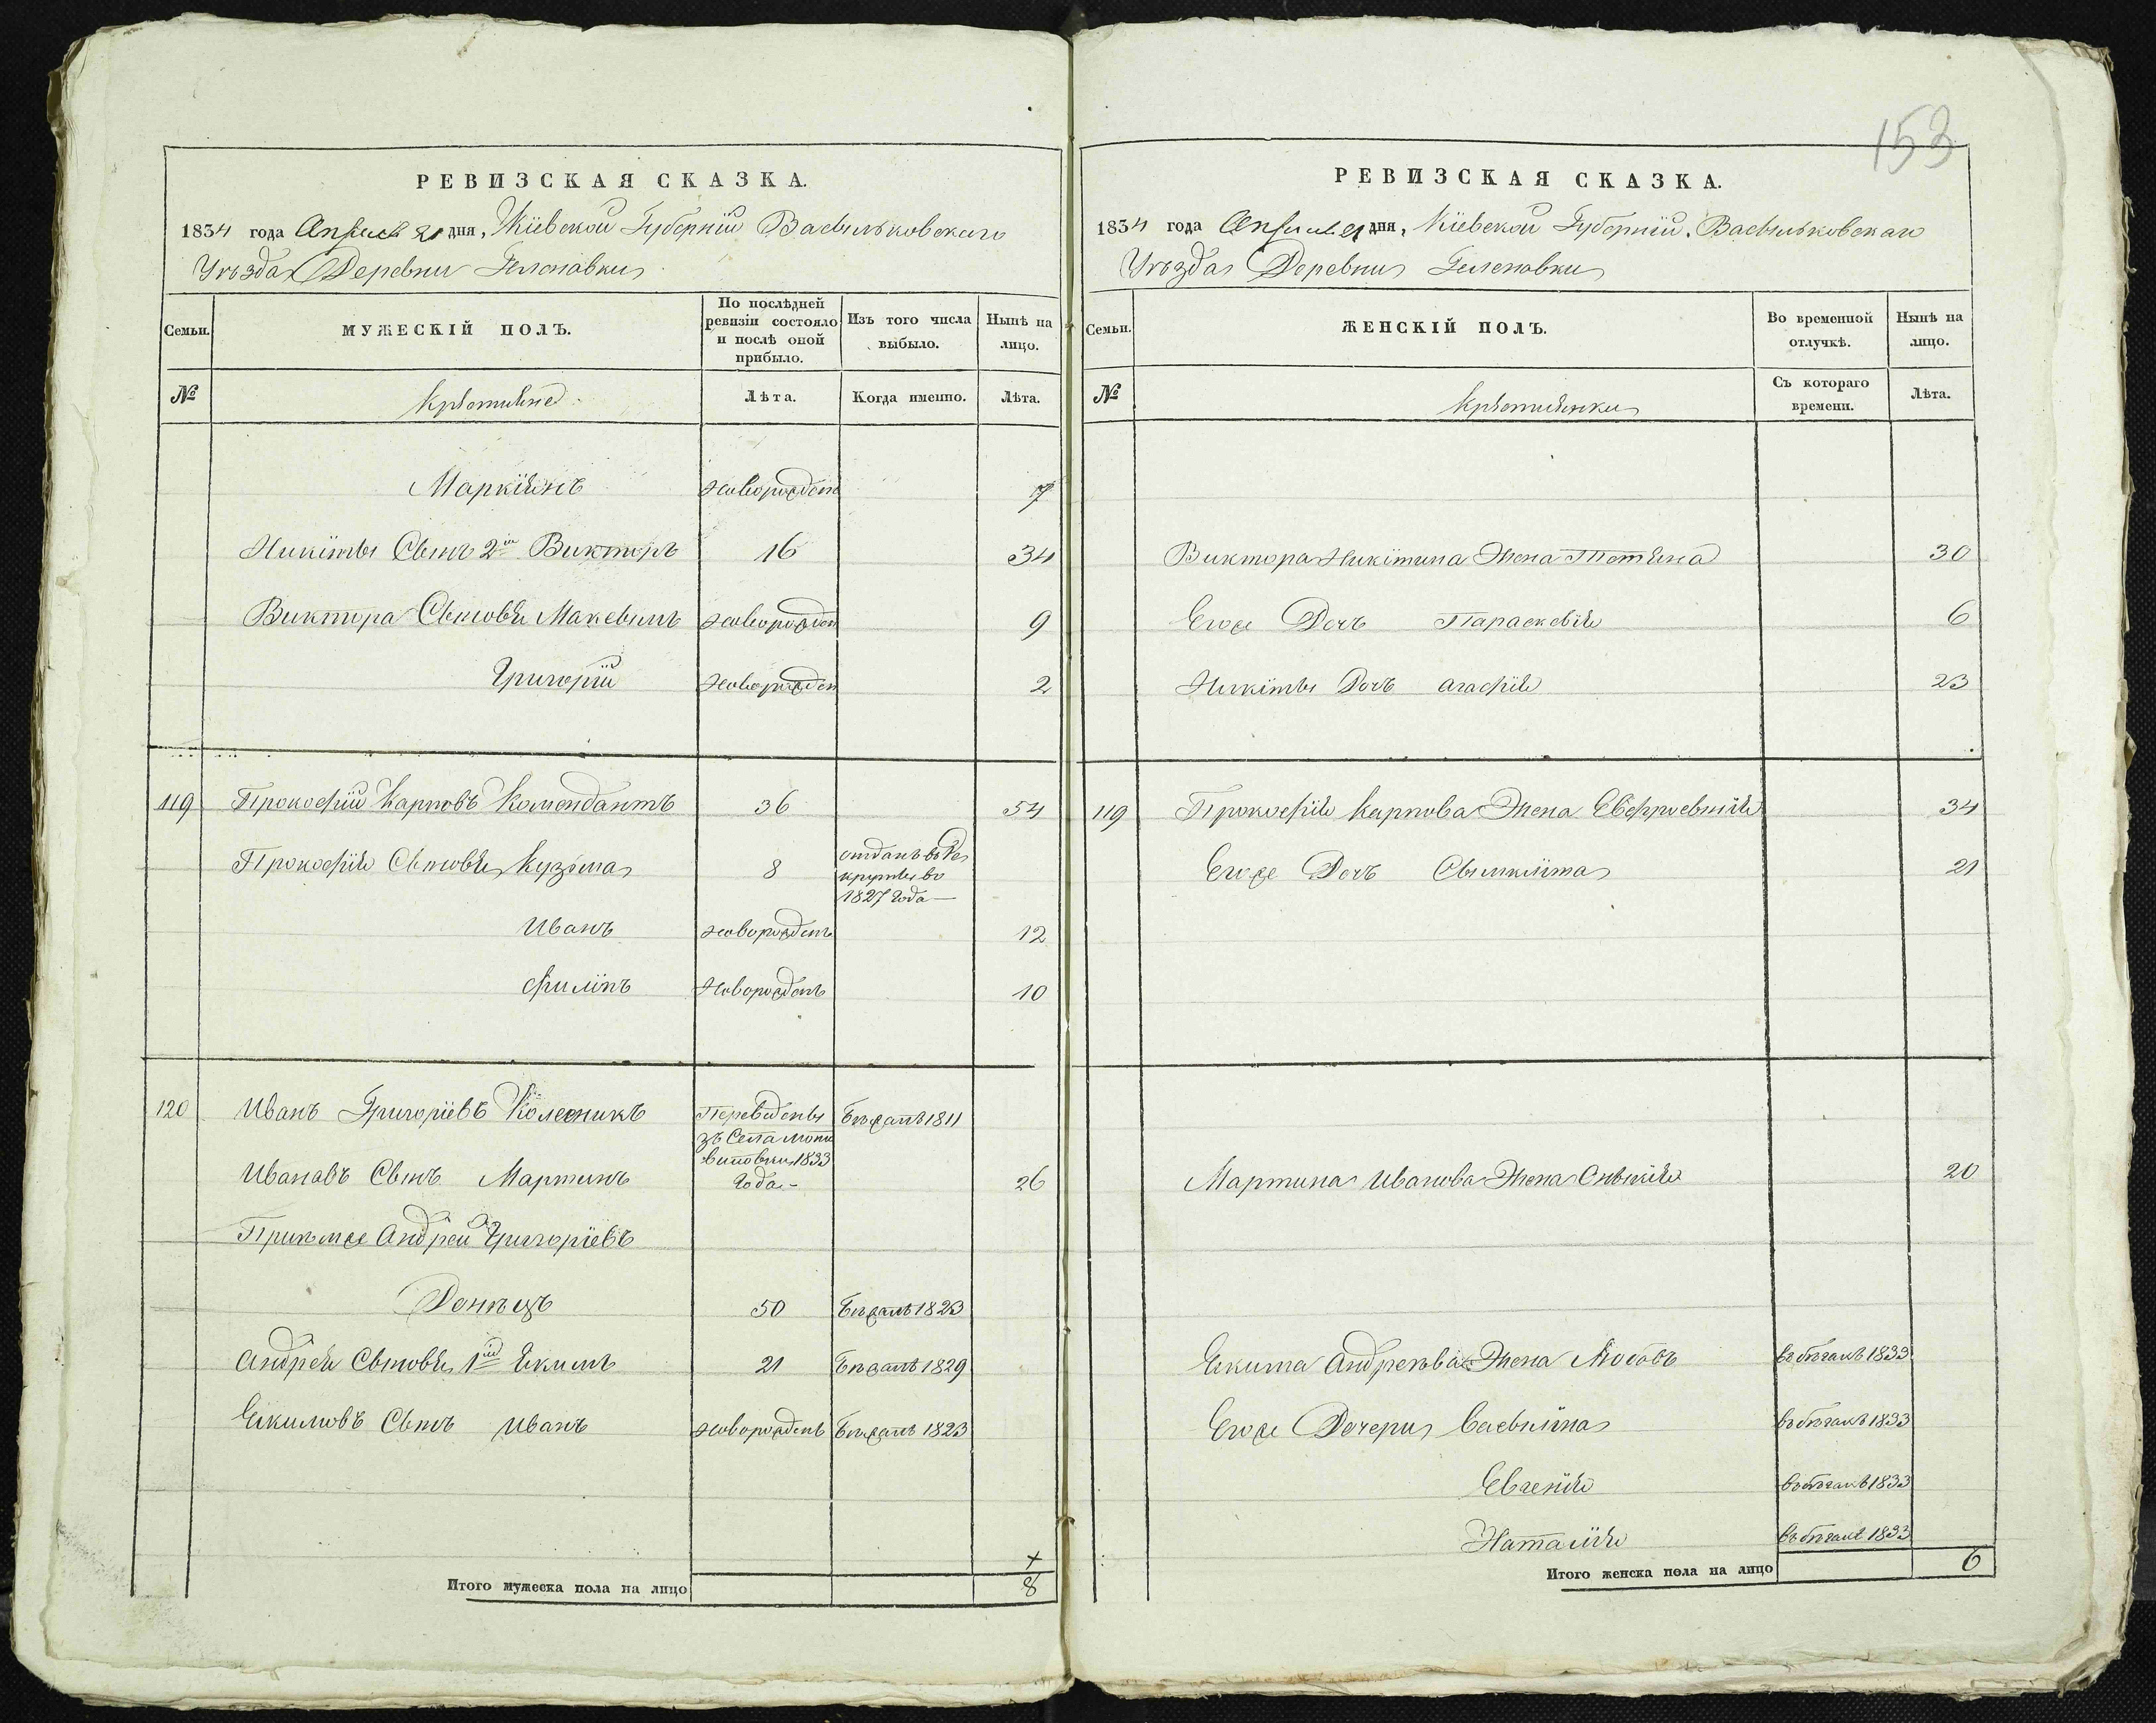 РЕВИЗСКАЯ СКАЗКА.
1834 года Апреля 21 дня, Кіевской Губерніи Васильковскаго
Уѣзда Деревни
Семьи.
МУЖЕСКІЙ ПОЛЪ.
По послѣдней ревизіи состояло и послѣ оной прибыло.
Изъ того числа выбыло.
Нынѣ на лицо.
№
Лѣта.
Когда именно.
Лѣта.
Маркіянъ новорожденъ 7
Никиты Сынъ 2й Викторъ 16 34
Виктора Сыновья новорожден 9
Григорій новорожден 2
119 Прокофій Карповъ Комендантъ 36 54
Прокофія Сыновья Кузьма 8
отданъ въ Ре
круты въ
1827 года
Иванъ новорожденъ 12
Филипъ новорожденъ 10
120 Иванъ Григоріевъ Колесникъ
Бѣжалъ 1811
зъ Села
1833
года
Ивановъ Сынъ Мартинъ 26
Андрей Григоріевъ
Донѣцъ 50 Бѣжалъ 1823
Андрея Сыновья 1й Якимъ 21 Бѣжалъ 1829
Якимовъ Сынъ Иванъ новорожденъ Бѣжалъ 1823
Итого мужеска пола на лицо 8
153
РЕВИЗСКАЯ СКАЗКА.
1834 года Апреля 21 дня, Кіевской Губерніи, Васильковскаго
Уѣзда Деревни
Семьи.
ЖЕНСКІЙ ПОЛЪ.
Во временной отлучкѣ.
Нынѣ на лицо.
№
Съ котораго времени.
Лѣта.
Виктора Никитина Жена Тетяна 30
Егоже Дочъ Параскевія 6
Никиты Дочъ Агафія 23
119 Прокофія Карпова Жена 34
Егоже Дочъ 21
Мартина Иванова Жена 20
Якима Андреева Жена Любовъ въ бѣгахъ 1833
Егоже Дочери Василина въ бѣгахъ 1833
Евгенія въ бѣгахъ 1833
Наталія въ бѣгахъ 1833
Итого женска пола на лицо 6